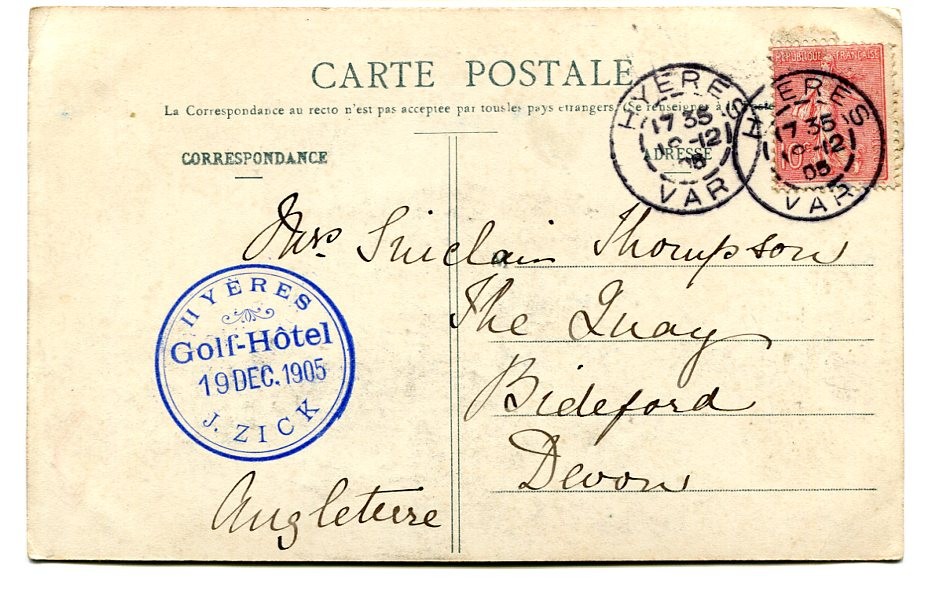 CARTE POSTALE
La Correspondance au recto n'est pas acceptee par tous les pays etrangers. (Se renseigner à la Poste
CORRESPONDANCE
ADRESSE
REPUBLIQUE FRANÇAISE
10c
HYÈRES
17 35
19-12
05
VAR
HYÈRES
17 35
19-12
05
VAR
Mrs Sinclair Thompson
The Quay
Bideford
Devon
Angleterre
HYÈRES
Golf-Hôtel
19 DEC. 1905
J. ZICK